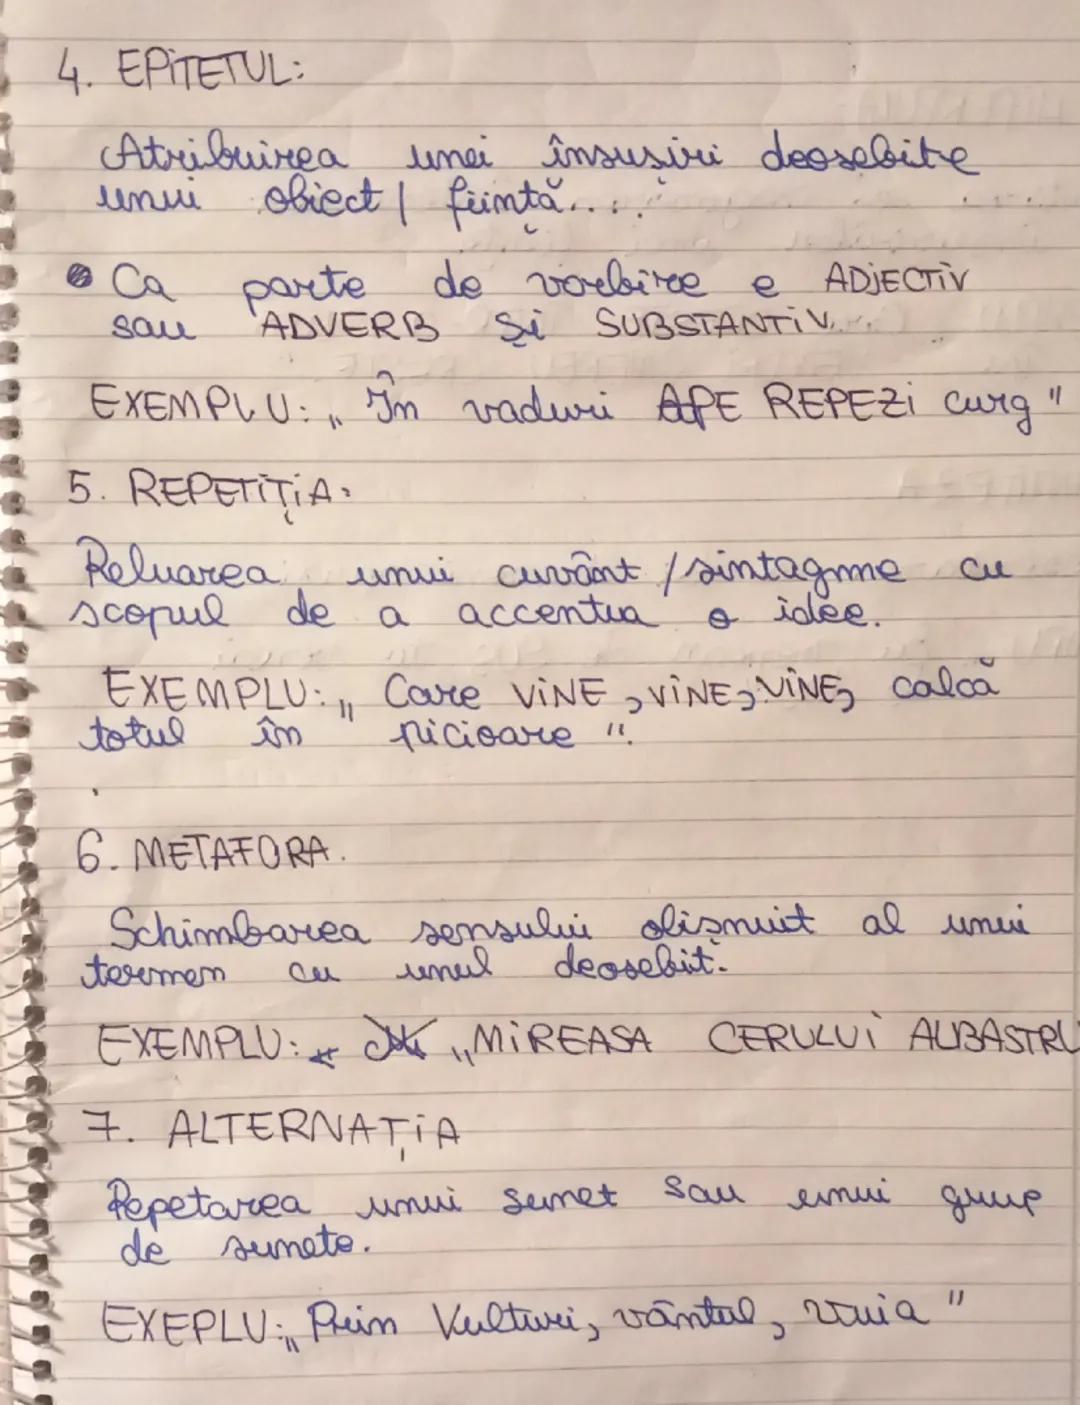 4. EPITETUL:
Atribuirea unei însușiri deosebite
unui obiect / ființă....
Ca parte de vorbire e ADJECTIV
sau ADVERB și SUBSTANTIV.
EXEMPLU: „În vaduri APE REPEZI curg"
5. REPETIȚIA:
Reluarea unui cuvânt / sintagme cu
scopul de a accentua o idee.
EXEMPLU: „Care VINE, VINE, VINE, calcă
totul în picioare".
6. METAFORA.
Schimbarea sensului obișnuit al unui
termen cu unul deosebit.
EXEMPLU: „MIREASA CERULUI ALBASTRU
7. ALTERNAȚIA
Repetarea unui sunet sau unui grup
de sunete.
EXEPLU: „Prin Vulturi, vântul, vuia"